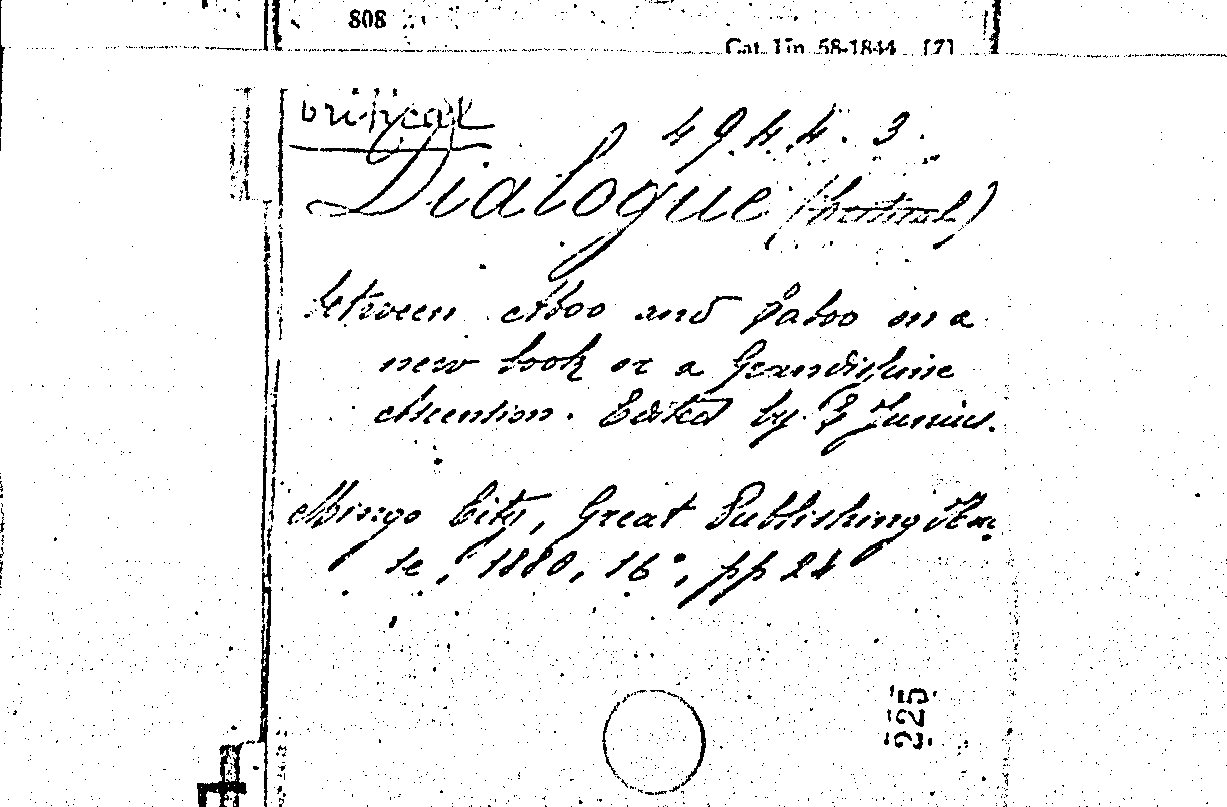 808
Cat. Un. 58-1844 [7]
critical
4944.3.
Dialogue
between Aboo and Caboo on a
new book or a Grandissime
Ascension. Edited by E Junius.
Mingo City, Great Publishing Hou-
se, 1880, 16°, pp 24
225